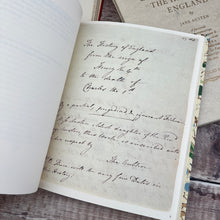 THE H
ENGLAND
JANE AUSTEN
The History of England
from the reign of
Henry the 4th
to the death of
Charles the 1st
By a partial, prejudiced & ignorant Historian
To Miss Austen eldest daughter of the Revd
this Work is inscribed with
respect by
The Author
There will be very few Dates in
this History